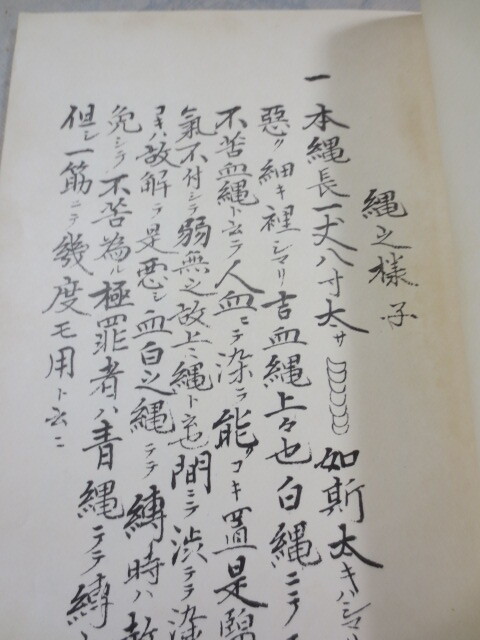 縄之様子
一本縄長一丈八寸太サ 如斯太キハシマリ
悪ク細キ裡シマリ吉血縄上々也白縄ニテ
不苦血縄ト云ラ人血ニテ染ラ能ツコキ置是
氣不付シラ弱無之故上ニ縄ト云也間ニラ渋テラ染
コキハ故解ラ是悪シ血白之縄ニテラ縛時ハ
免シラ不苦為ル極罪者ハ青縄ニテラ縛
但シ一筋ニテ幾度モ用ト云ニ